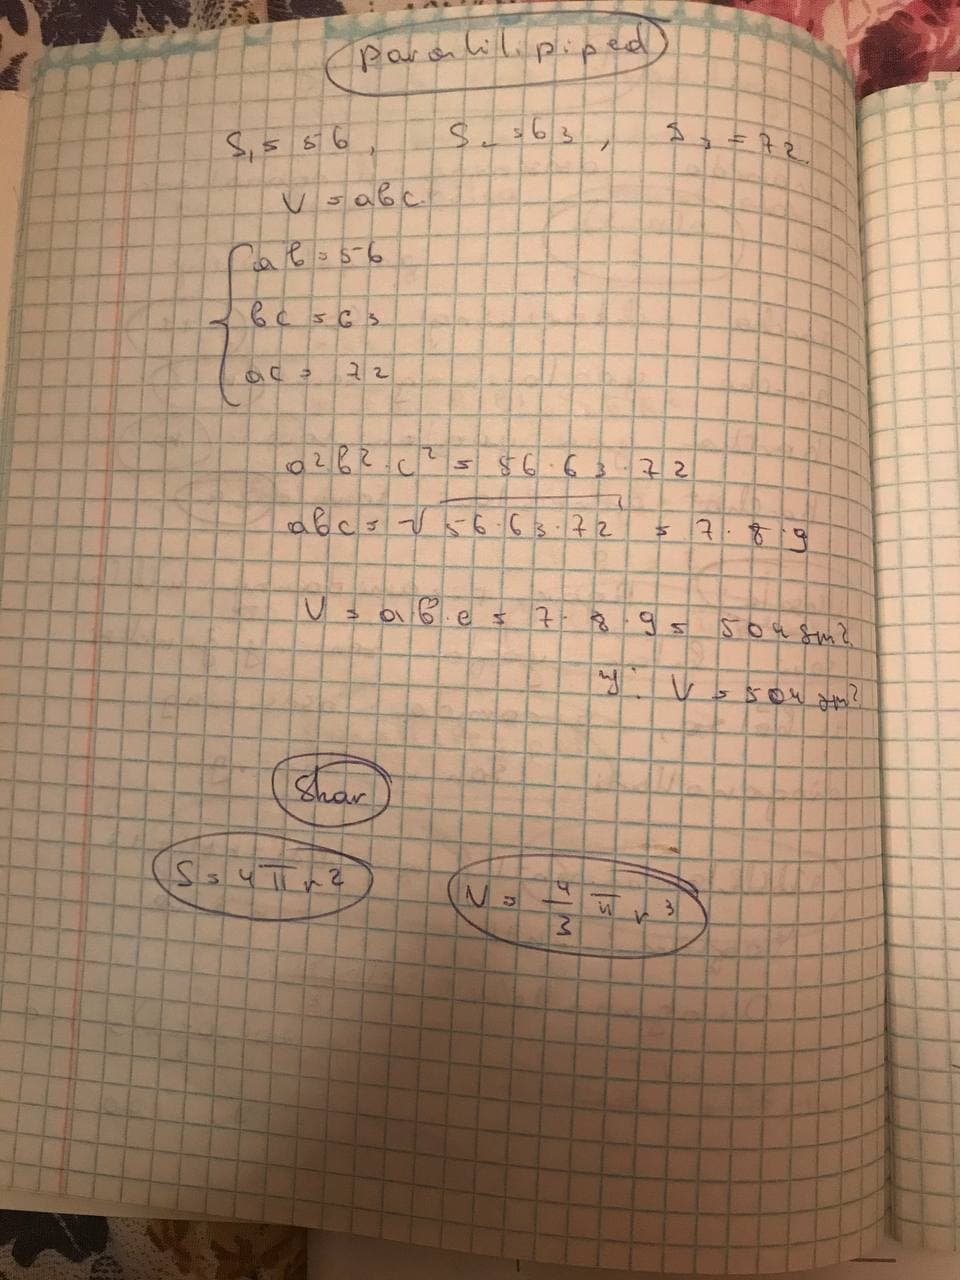 Paralilipiped
S₁ = 56, S₂ = 63, S₃ = 72.
V = abc.
ab = 56
bc = 63
ac = 72
a²b²·c² = 56·63·72
abc = √56·63·72 = 7·8·9
V = ab·c = 7·8·9 = 504 sm²
y: V = 504 sm²
Shar
S = 4πr²
V = 4/3 πr³